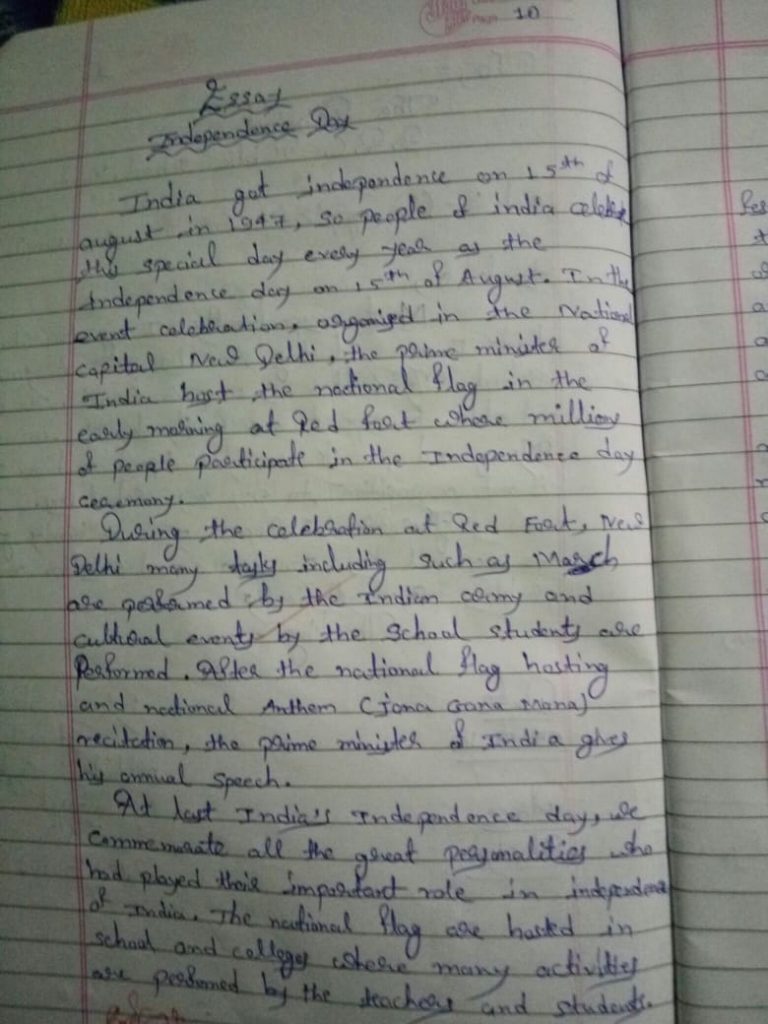 10
Essay
Independence Day
India got independence on 15th of
august in 1947, So people of india celebrate
this special day every year as the
Independence day on 15th of August. In the
event celebration, organised in the National
capital New Delhi, the prime minister of
India host the national flag in the
early morning at Red fort where million
of people participate in the Independence day
ceremony.
During the celebration at Red Fort, New
Delhi many tasks including such as March
are performed by the Indian army and
cultural events by the School students are
Performed. After the national flag hosting
and national Anthem (jana Gana Mana)
recitation, the prime minister of India gives
his annual speech.
At last India's Independence day, we
Commemorate all the great personalities who
had played their important role in independence
of India. The national flag are hosted in
school and colleges where many activities
are performed by the teachers and students.